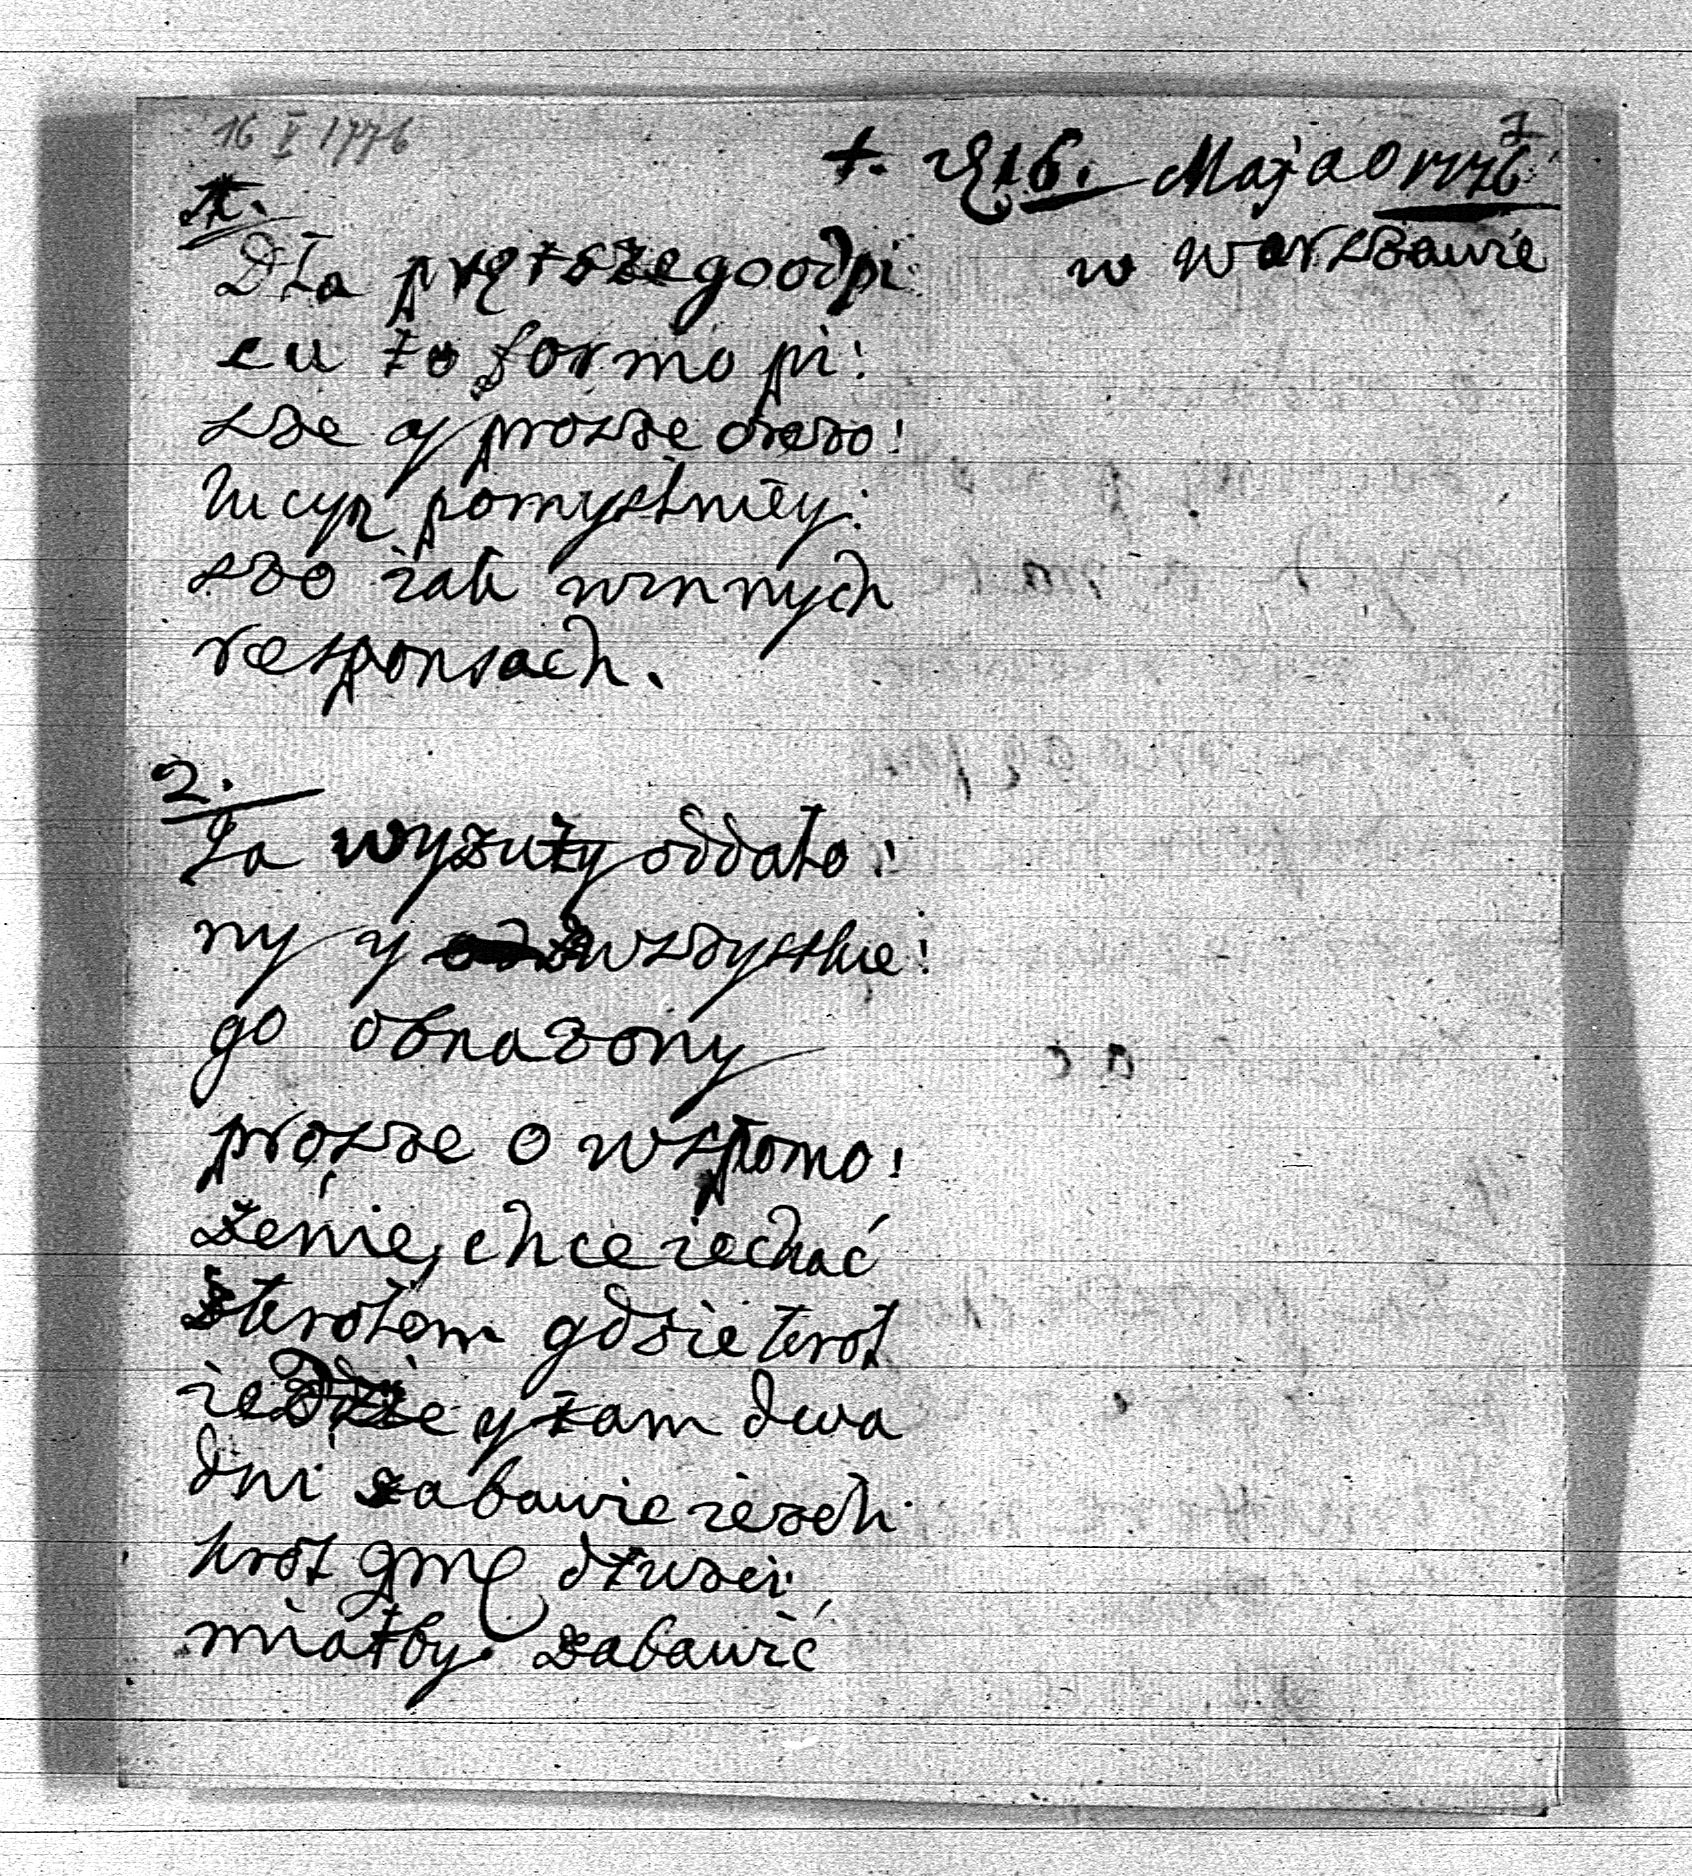 16 V 1776
1
+. D 16. Maja 0 1776
w Warszawie
1.
Dla prętszego odpi
su to formo pi:
sze y prosze oreso:
lucyą pomyslniey:
szo iak winnych
responsach.
2.
Ja wyzuty oddalo:
ny y wszystkie:
go obnazony
prosze o wspomo:
żenie, chce iechać
z krolem gdzie krol
iedzie y tam dwa
dni zabawie iezeli
krol gmę dłuzei
miałby zabawić